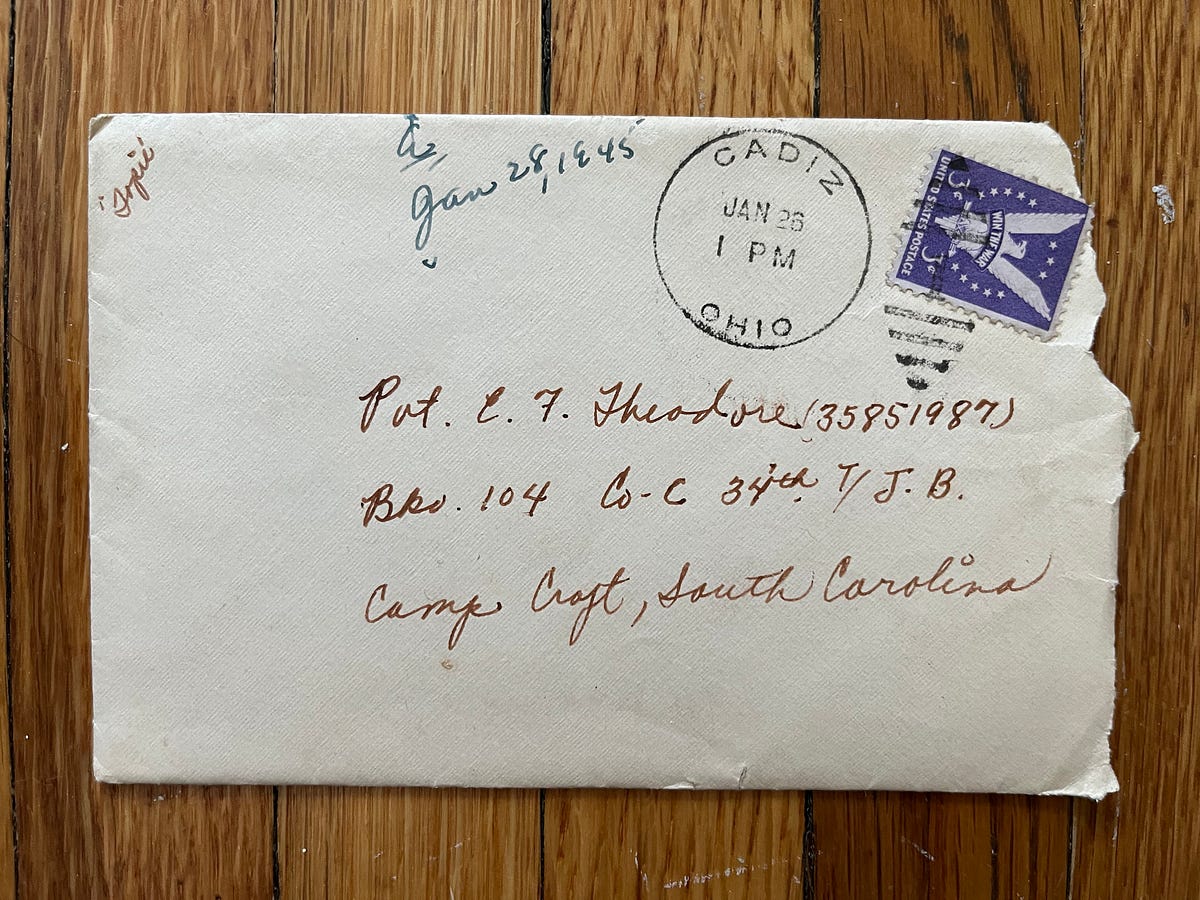 Jan 28, 1945
CADIZ
JAN 26
1 PM
OHIO
UNITED STATES POSTAGE
3¢
WIN THE WAR
3¢
Pvt. C. F. Theodore (35851987)
Bko. 104 Co-C 34th T/ J. B.
Camp Croft, South Carolina